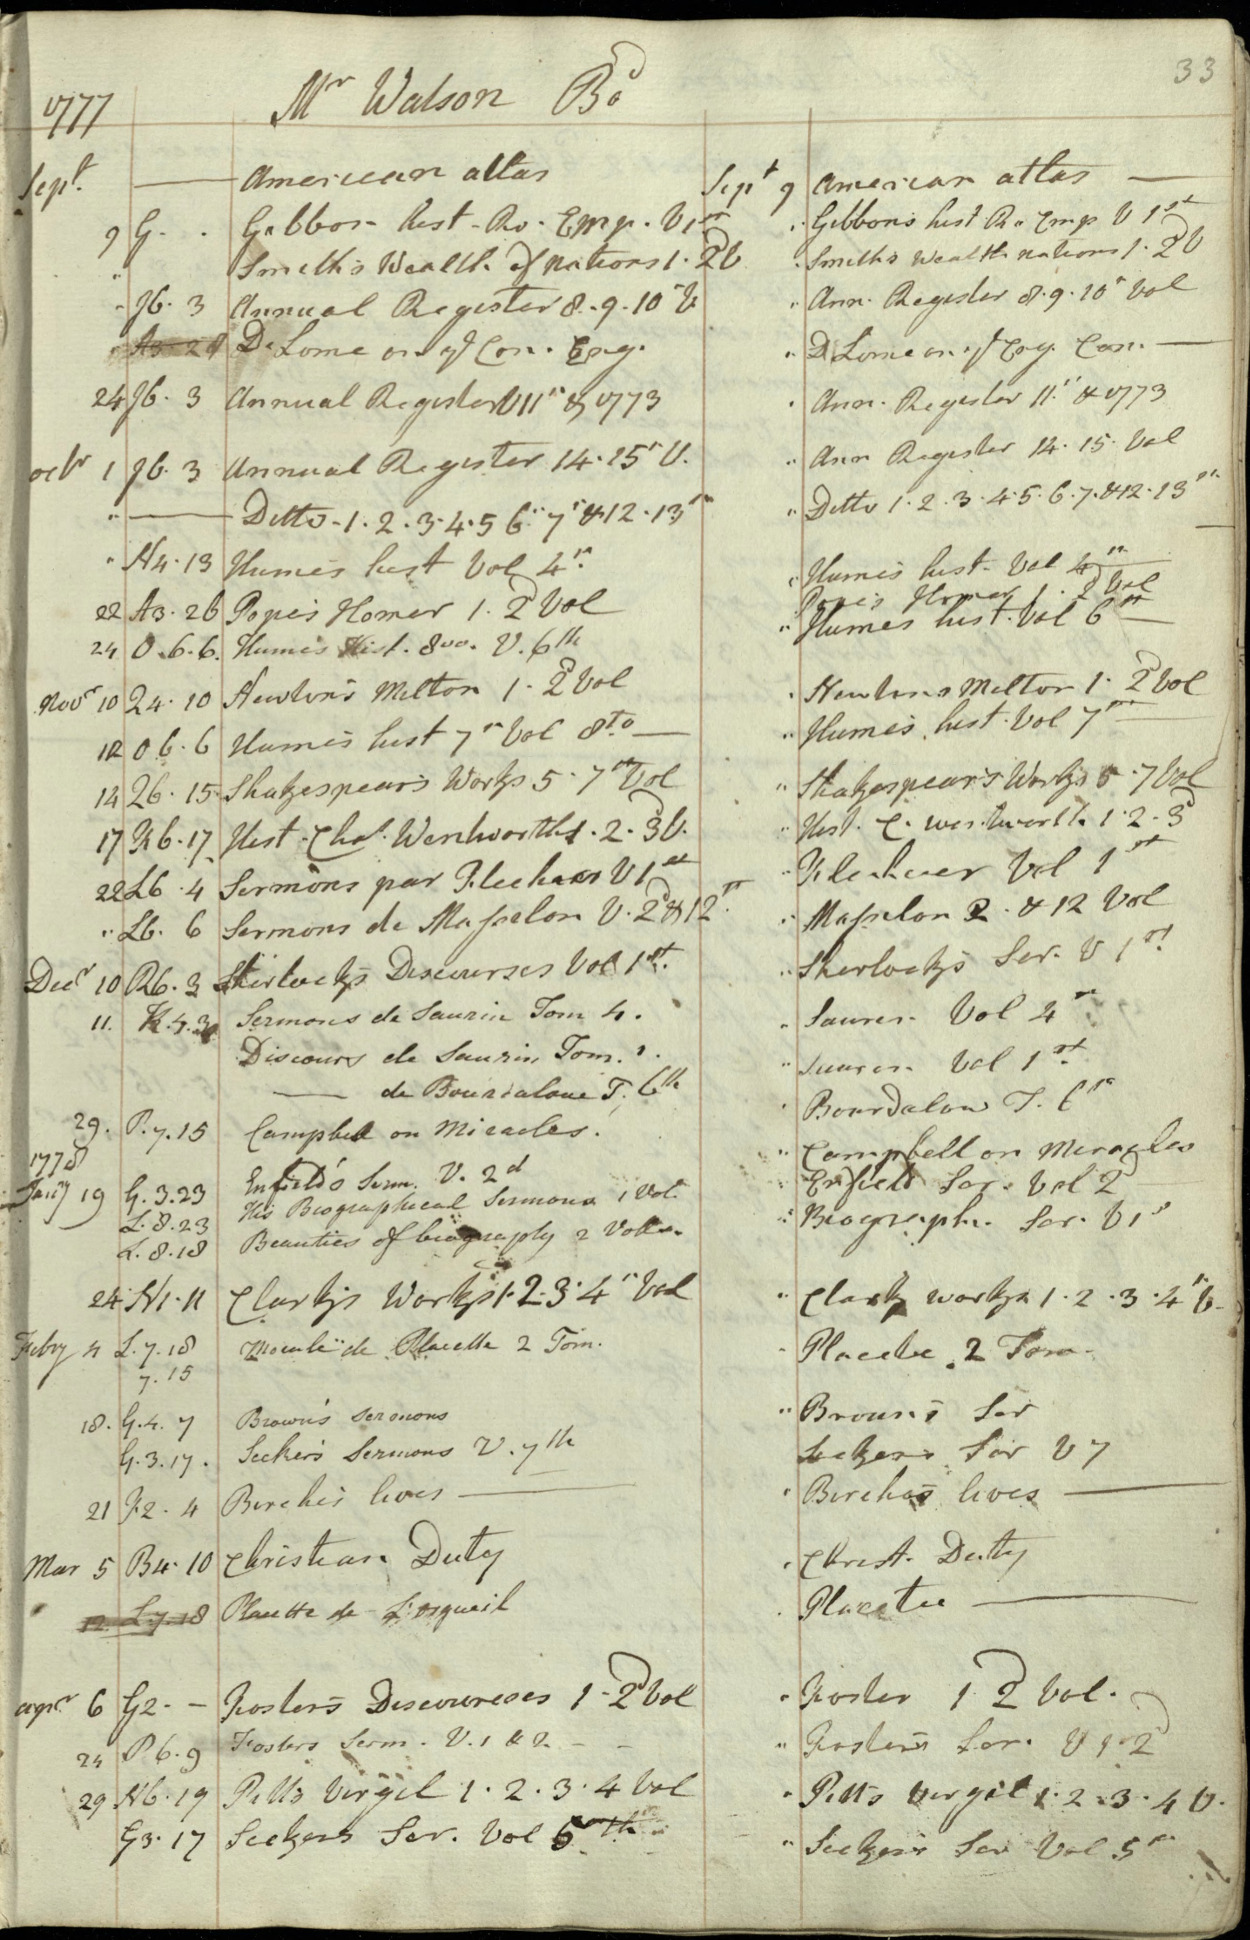 33
1777 Mr Watson Bo^d
Sept. — American atlas Sept 9 American atlas —
9 G. . Gibbon hist. Ro. Emp. V 1st " Gibbon's hist Ro. Emp V 1st
" Smith's Wealth of nations 1. 2d V " Smith's Wealth nations 1. 2d V
" J6. 3 Annual Register 8. 9. 10th V " Ann. Register 8. 9. 10th Vol
" A3. 28 De Lome on ye Con. Eng. " De Lome on ye Eng. Con. —
24 J6. 3 Annual Register V 11th & 1773 " Ann. Register 11th & 1773
octbr 1 J6. 3 Annual Register 14. 15th V. " Ann Register 14. 15. Vol
" — Ditto - 1. 2. 3. 4. 5 6th 7th & 12. 13th " Ditto 1. 2. 3. 4. 5. 6. 7. & 12. 13th —
" N4. 13 Humes hist Vol 4th " Humes hist. Vol 4th —
22 A3. 26 Pope's Homer 1. 2d Vol Pope's Homer 1. 2d Vol
24 O. 6. 6. Hume's Hist. 8vo. V. 6th " Humes hist. Vol 6th —
Novr 10 24. 10 Newton's Milton 1. 2d Vol " Newtons Milton 1. 2d Vol
12 O 6. 6 Humes hist 7th Vol 8to — " Humes hist. Vol 7th —
14 26. 15 Shakespears Works 5. 7th Vol " Shakespear's Works 5. 7 Vol
17 K6. 17. Hist. Cha. Wentworth 1. 2. 3d V. " Hist. C. wentworth 1. 2. 3d
22 L6. 4 Sermons par Flechier V 1st " Flechier Vol 1st
" L6. 6 Sermons de Massilon V. 2d & 12th " Massilon 2. & 12 Vol
Decr 10 R6. 3 Sherlock's Discourses Vol 1st. " Sherlock's Ser. V 1st
11. K. 4. 3 Sermons de Saurin Tom 4. " Saurin. Vol 4th
Discours de Saurin Tom. 1. " Saurin. Vol 1st
— de Bourdaloue T. 6th " Bourdalou T. 6th
29. P. 7. 15 Campbel on Miracles. " Campbell on Miracles
1778
Janry 19 G. 3. 23 Enfield's Serm. V. 2d " Enfield Ser. Vol 2d
L. 8. 23 His Biographical Sermons 1 Vol. " Biograph. Ser. V 1st
L. 8. 18 Beauties of biography 2 Volls.
24 N1. 11 Clark's Works 1. 2. 3. 4th Vol " Clark works 1. 2. 3. 4th V.
Febry 4 L. 7. 18 de Placette 2 Tom. " Placete 2 Tom.
7. 15
18. G. 4. 7 Brown's Sermons " Brown's Ser
G. 3. 17. Secker's Sermons V. 7th Seckers Ser V 7
21 F2. 4 Birche's lives — " Birches lives —
Mar 5 B4. 10 Christian Duty " Christ. Duty
12. L. 7. 18 Placette de L'orgueil " Placetee —
apr. 6 G2. — Foster's Discourses 1. 2d Vol " Foster 1. 2d Vol.
24 P 6. 9 Fosters Serm. V. 1 & 2. — — " Foster's Ser. V 1. 2d
29 N6. 19 Pitts Virgil 1. 2. 3. 4 Vol " Pitts virgil 1. 2. 3. 4 V.
G3. 17 Seckers Ser. Vol 5th " Seckers Ser Vol 5th